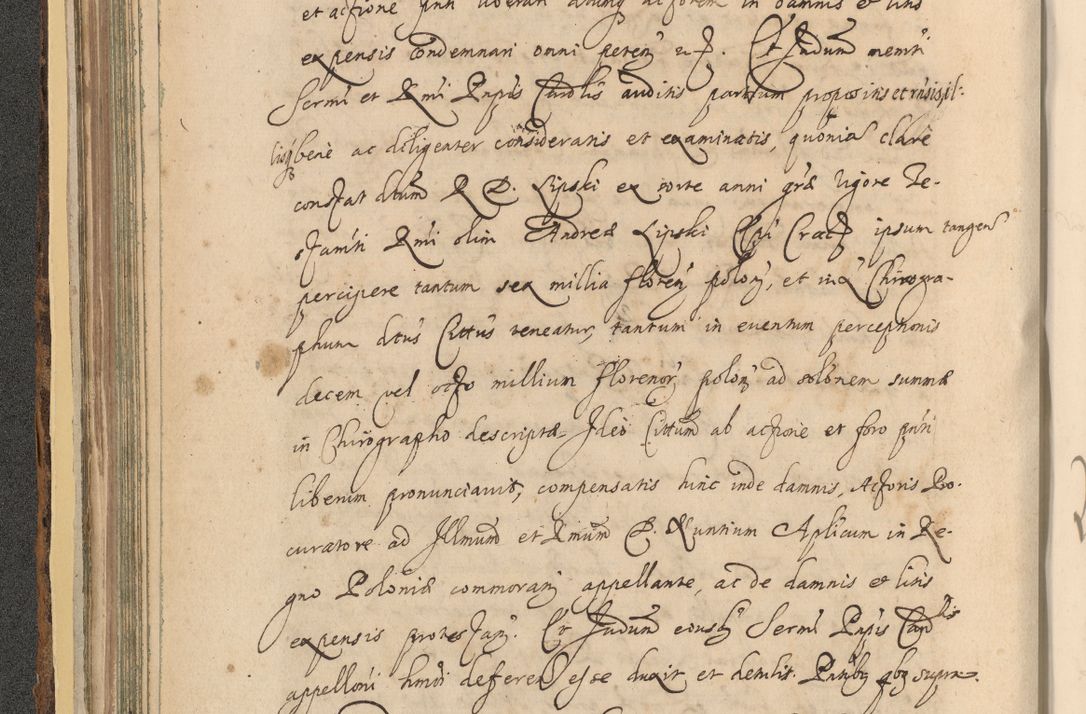 et actione pnti liberari actorem in damnis et litis
expensis condemnari omni peten
Sermi et Rmi Pnpis Cardlis auditis partium propositis et
bene ac diligenter consideratis et examinatis, quonia clare
constat dtum R D. Lipski ex sorte anni grae vigore Te-
stamti Rmi olim Andreae Lipski Epi Crac ipsum tangen
percipere tantum sex millia floren polon, et in Chirogra-
phum dtus Cittus teneatur, tantum in eventum perceptionis
decem vel octo millium florenor polon ad solonem summae
in Chirographo descriptae Ideo Cittum ab actione et foro pnti
liberum pronunciavit, compensatis hinc inde damnis, Actoris Pro-
curatore ad Illmum et Rmum D. Nuntium Aplicum in Re-
gno Poloniae commoran appellante, ac de damnis et litis
expensis protestan. Et Judm eiusd Sermi Pnpis Cardlis
appelloni hmoi deferen esse duxit et detulit. Pntibq qbq supra.